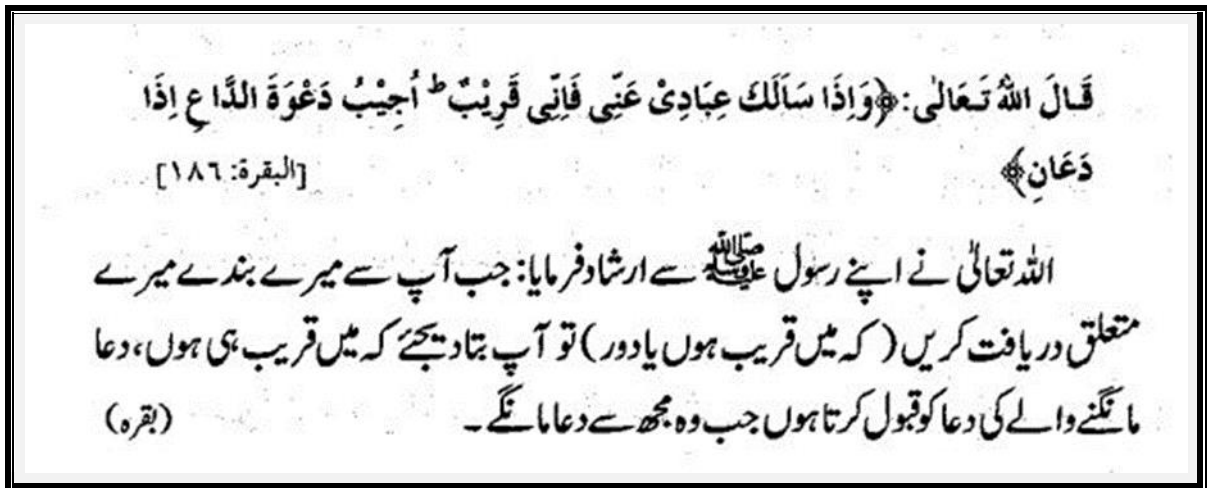 قَالَ اللّٰهُ تَعَالٰى: ﴿وَاِذَا سَاَلَكَ عِبَادِىْ عَنِّىْ فَاِنِّىْ قَرِيْبٌ ؕ اُجِيْبُ دَعْوَةَ الدَّاعِ اِذَا
دَعَانِ﴾ [البقرة: ١٨٦]
اللہ تعالیٰ نے اپنے رسول ﷺ سے ارشاد فرمایا: جب آپ سے میرے بندے میرے
متعلق دریافت کریں (کہ میں قریب ہوں یا دور) تو آپ بتا دیجئے کہ میں قریب ہی ہوں، دعا
مانگنے والے کی دعا کو قبول کرتا ہوں جب وہ مجھ سے دعا مانگے۔ (بقرہ)